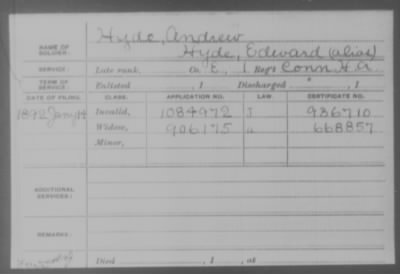 Hyde, Andrew
NAME OF SOLDIER: Hyde, Edward (alias)
SERVICE: Late rank, Co. E, 1 Reg't Conn H.A.
TERM OF SERVICE: Enlisted , 1 Discharged , 1
DATE OF FILING. CLASS. APPLICATION NO. LAW. CERTIFICATE NO.
1892 Jany 14 Invalid, 1084972 J 936710
Widow, 906175 " 668857
Minor,
ADDITIONAL SERVICES:
REMARKS:
Died , 1 , at